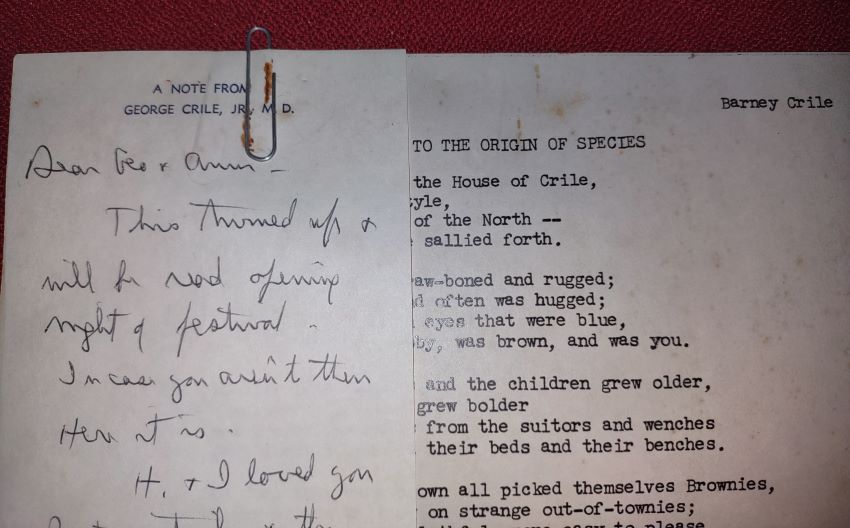 A NOTE FROM
GEORGE CRILE, JR., M.D.
Dear Geo & Ann —
This turned up &
will be read opening
night of festival.
In case you aren't there
Here it is.
H. & I loved you
Barney Crile
TO THE ORIGIN OF SPECIES
the House of Crile,
yle,
of the North --
sallied forth.
aw-boned and rugged;
d often was hugged;
eyes that were blue,
by, was brown, and was you.
and the children grew older,
grew bolder
from the suitors and wenches
their beds and their benches.
own all picked themselves Brownies,
on strange out-of-townies;
easy to please